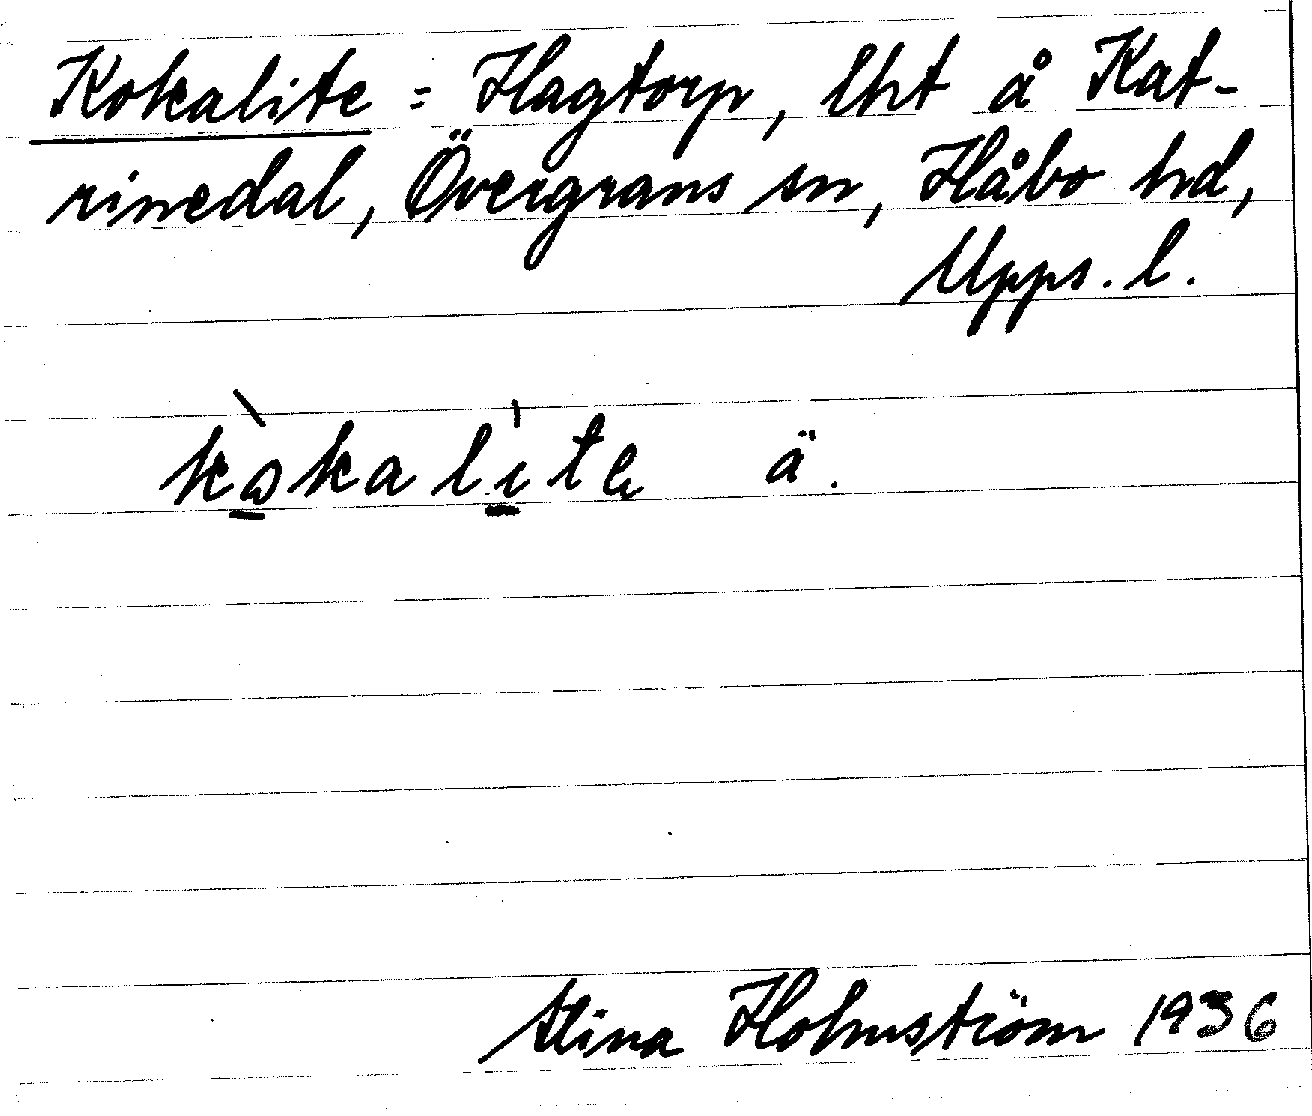 Kokalite = Hagtorp, lht å Kat-
rinedal, Övergrans sn, Håbo hd,
Upps. l.
kòkalíte ä.
Stina Holmström 1936